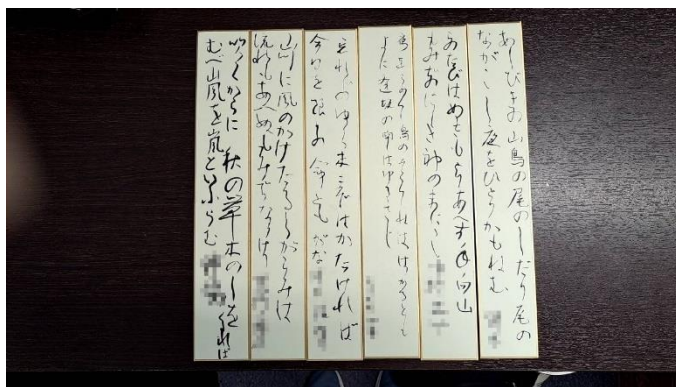 あしびきの 山鳥の尾のしたり尾の
ながゝゝし夜をひとりかもねむ
このたびはぬさもとりあへす手向山
もみぢのにしき神のまにまに
夜をこめて鳥のそらねははかるとも
よに逢坂の関はゆるさじ
忘れじのゆく末まではかたければ
今日を限りの命ともがな
山川に風のかけたるしがらみは
流れもあへぬもみぢなりけり
吹くからに 秋の草木のしをるれば
むべ山風を嵐といふらむ